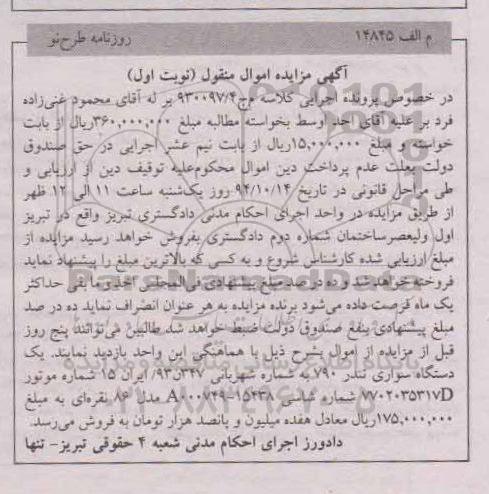 م الف ۱۴۸۴۵
روزنامه طرح‌نو
آگهی مزایده اموال منقول (نوبت اول)
در خصوص پرونده اجرایی کلاسه ج۹۳۰۰۹۷/۴ بر له آقای محمود غنی‌زاده
فرد بر علیه آقای احد اوسط بخواسته مطالبه مبلغ ۳۶۰,۰۰۰,۰۰۰ریال از بابت
خواسته و مبلغ ۱۵,۰۰۰,۰۰۰ریال از بابت نیم عشر اجرایی در حق صندوق
دولت بعلت عدم پرداخت دین اموال محکوم‌علیه توقیف دین از ارزیابی و
طی مراحل قانونی در تاریخ ۹۴/۱۰/۱۴ روز یک‌شنبه ساعت ۱۱ الی ۱۲ ظهر
از طریق مزایده در واحد اجرای احکام مدنی دادگستری تبریز واقع در تبریز
اول ولیعصرساختمان شماره دوم دادگستری بفروش خواهد رسید مزایده از
مبلغ ارزیابی شده کارشناس شروع و به کسی که بالاترین مبلغ را پیشنهاد نماید
فروخته خواهد شد و ده در صد مبلغ پیشنهادی فی‌المجلس اخذ و مابقی حداکثر
یک ماه فرصت داده می‌شود برنده مزایده به هر عنوان انصراف نماید ده در صد
مبلغ پیشنهادی بنفع صندوق دولت ضبط خواهد شد طالبین می‌توانند پنج روز
قبل از مزایده از اموال بشرح ذیل با هماهنگی این واحد بازدید نمایند. یک
دستگاه سواری تندر ۷۹۰ به شماره شهربانی ۹۳/۳۴۷ن ایران ۱۵ شماره موتور
۷۷۰۲۰۳۵۳۱۷D شماره شاسی A۰۰۰۷۴۹-۱۵۴۳۸ مدل ۸۶ نقره‌ای به مبلغ
۱۷۵,۰۰۰,۰۰۰ریال معادل هفده میلیون و پانصد هزار تومان به فروش می‌رسد.
دادورز اجرای احکام مدنی شعبه ۴ حقوقی تبریز- تنها
ParsNamadData